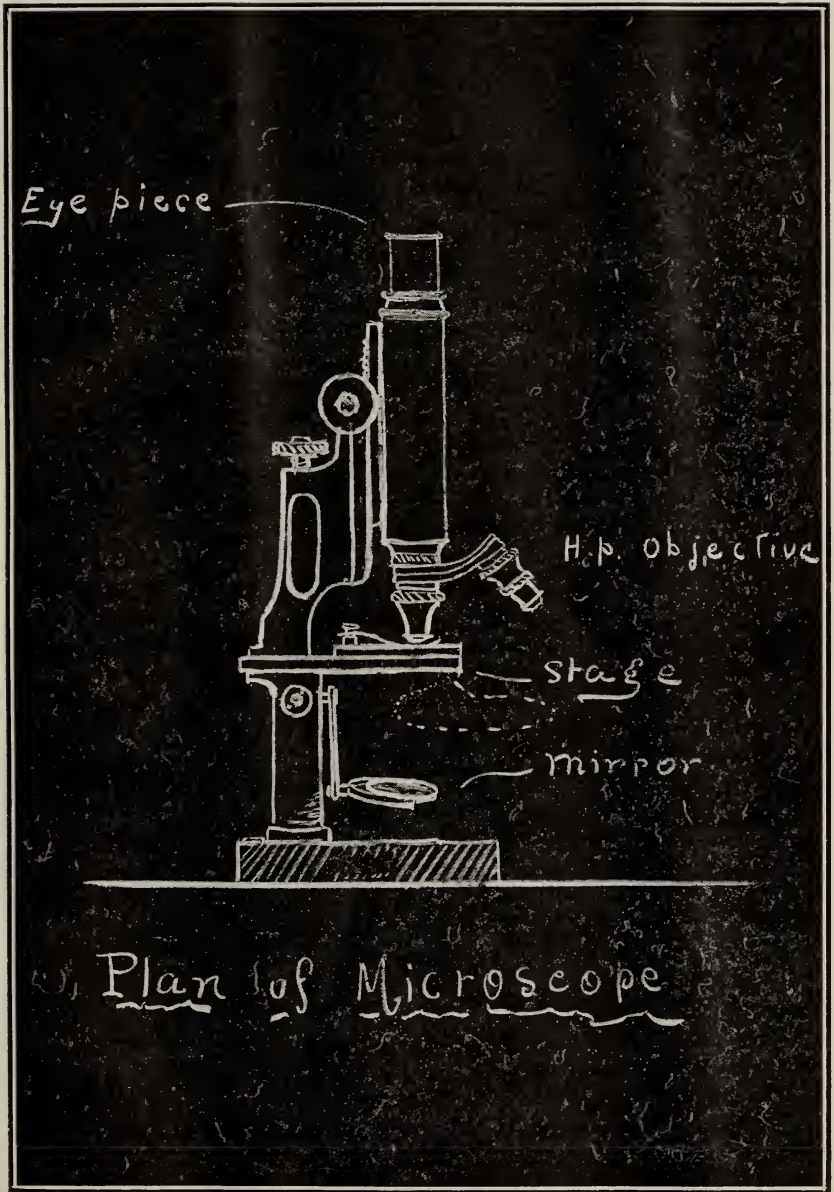 Eye piece
H.p. Objective
Stage
Mirror
Plan of Microscope